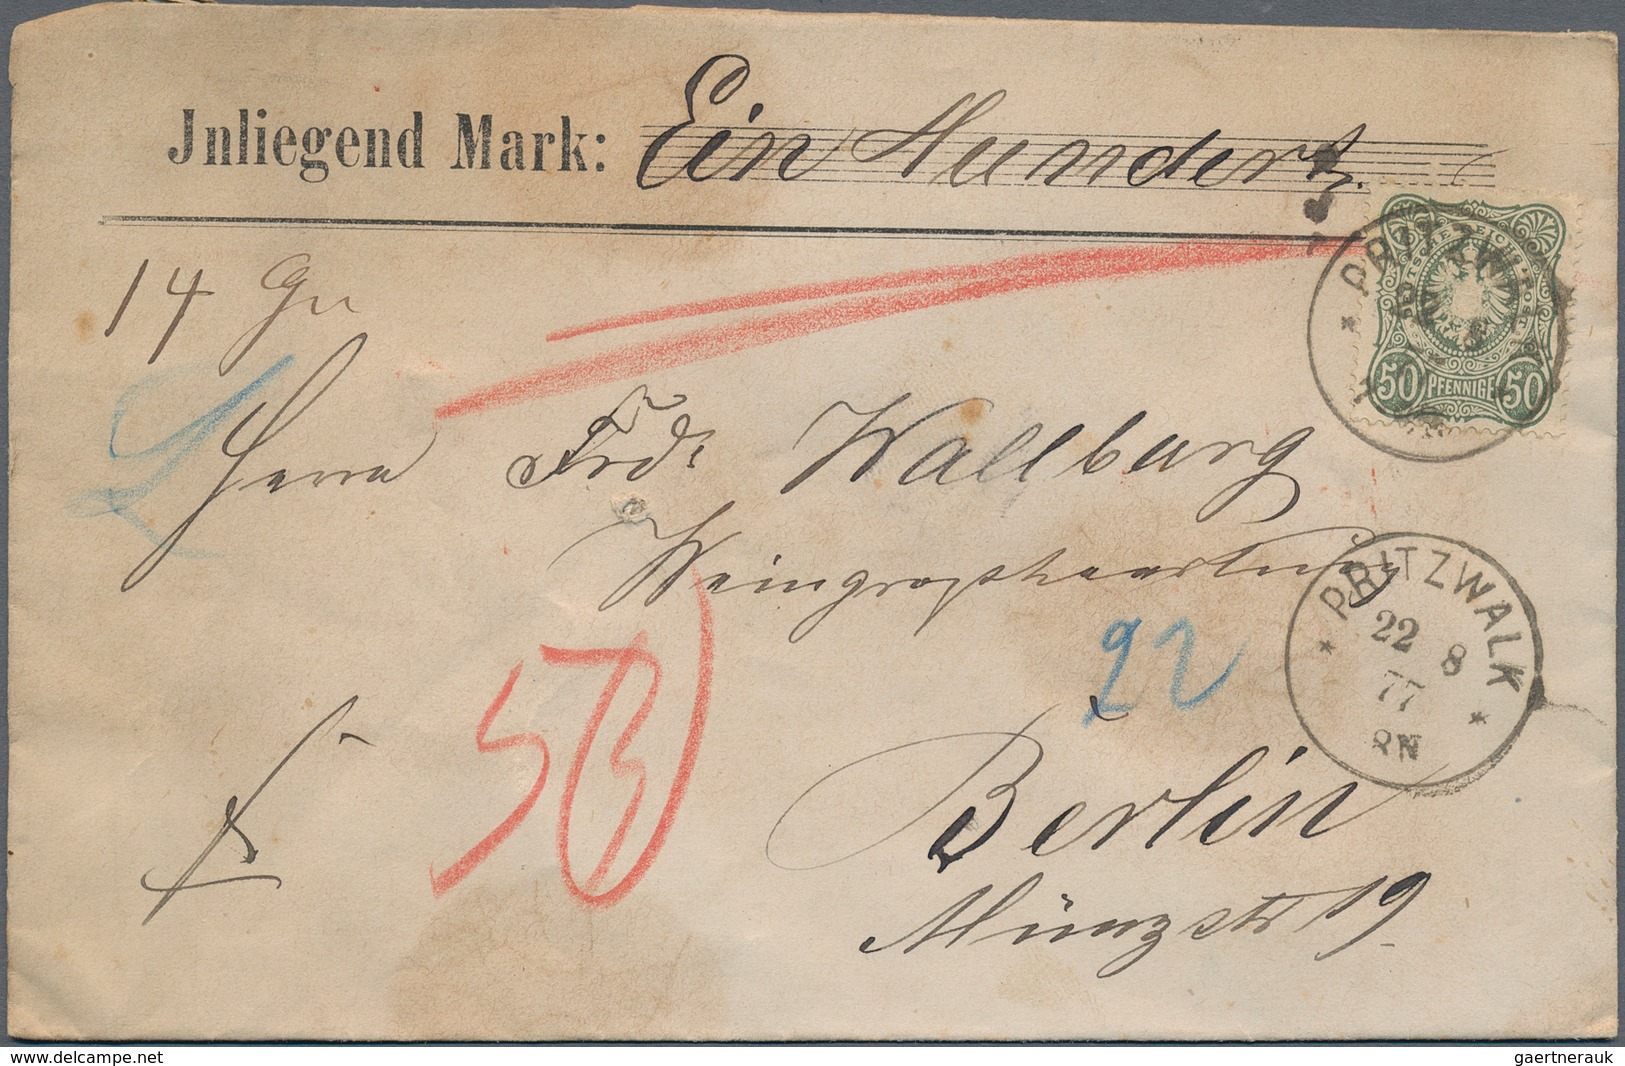 Jnliegend Mark: Ein Hundert
PRITZWALK
DEUTSCHE REICHS-POST
50 PFENNIGE 50
14 Gr
Herrn Frdr Wallburg
Weingrosshandlung
PRITZWALK
22 8
77
8N
22
Berlin
Münzstr 19
www.delcampe.net
gaertnerauk